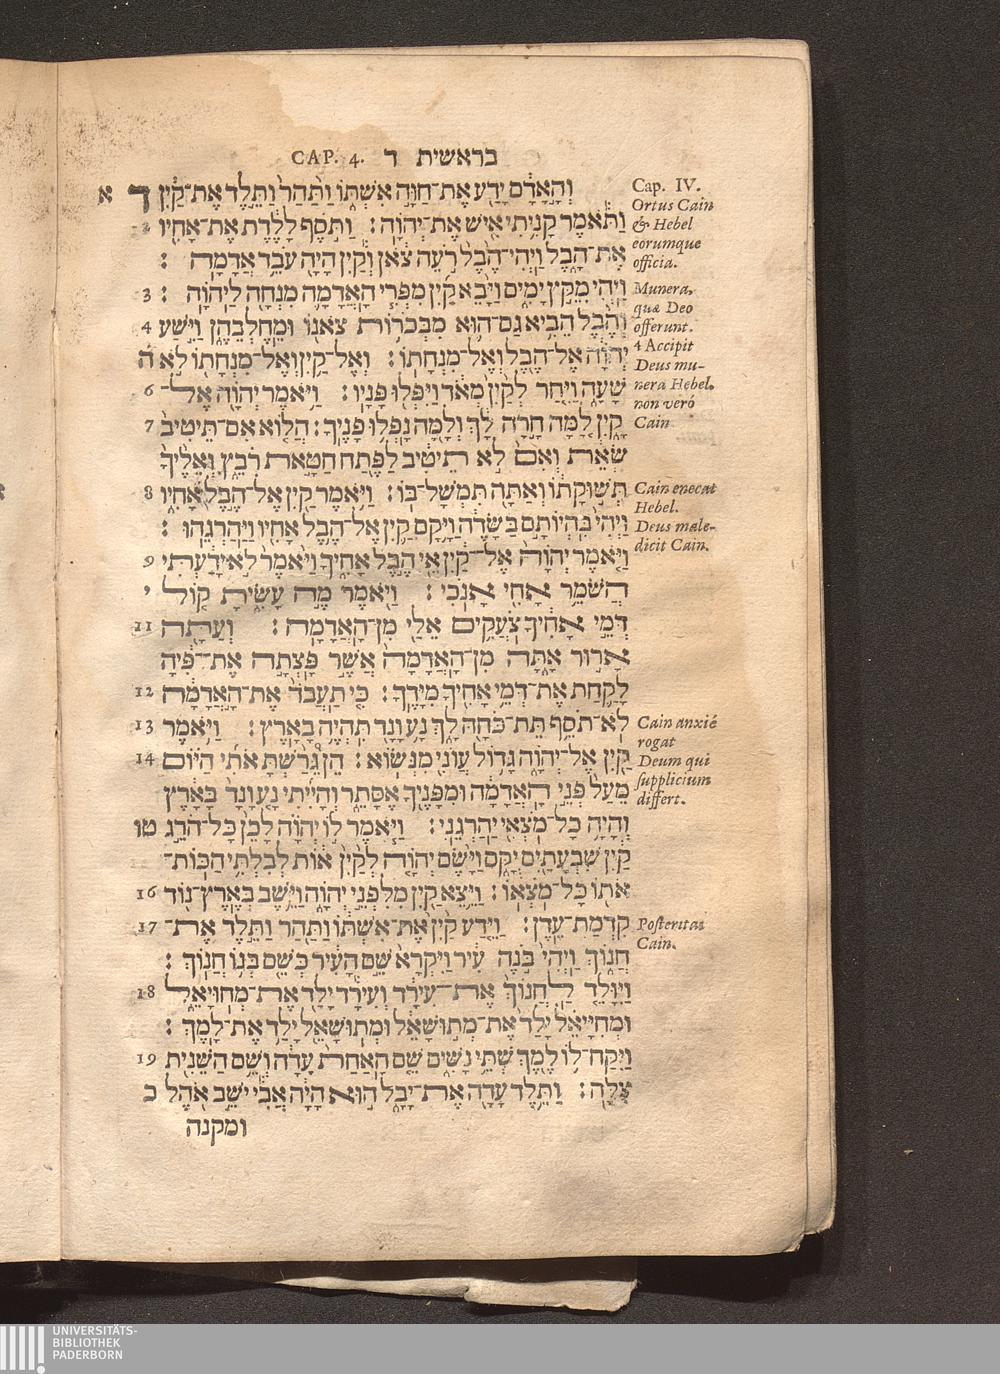 CAP. 4. בראשית ד
א ד וְהָאָדָם יָדַע אֶת־חַוָּה אִשְׁתּוֹ וַתַּהַר וַתֵּלֶד אֶת־קַיִן
2 וַתֹּאמֶר קָנִיתִי אִישׁ אֶת־יְהוָה׃ וַתֹּסֶף לָלֶדֶת אֶת־אָחִיו
אֶת־הָבֶל וַיְהִי־הֶבֶל רֹעֵה צֹאן וְקַיִן הָיָה עֹבֵד אֲדָמָה׃
3 וַיְהִי מִקֵּץ יָמִים וַיָּבֵא קַיִן מִפְּרִי הָאֲדָמָה מִנְחָה לַיהוָה׃
4 וְהֶבֶל הֵבִיא גַם־הוּא מִבְּכֹרוֹת צֹאנוֹ וּמֵחֶלְבֵהֶן וַיִּשַׁע
ה יְהוָה אֶל־הֶבֶל וְאֶל־מִנְחָתוֹ׃ וְאֶל־קַיִן וְאֶל־מִנְחָתוֹ לֹא
6 שָׁעָה וַיִּחַר לְקַיִן מְאֹד וַיִּפְּלוּ פָּנָיו׃ וַיֹּאמֶר יְהוָה אֶל־
7 קָיִן לָמָּה חָרָה לָךְ וְלָמָּה נָפְלוּ פָנֶיךָ׃ הֲלוֹא אִם־תֵּיטִיב
שְׂאֵת וְאִם לֹא תֵיטִיב לַפֶּתַח חַטָּאת רֹבֵץ וְאֵלֶיךָ
8 תְּשׁוּקָתוֹ וְאַתָּה תִּמְשָׁל־בּוֹ׃ וַיֹּאמֶר קַיִן אֶל־הֶבֶל אָחִיו
וַיְהִי בִּהְיוֹתָם בַּשָּׂדֶה וַיָּקָם קַיִן אֶל־הֶבֶל אָחִיו וַיַּהַרְגֵהוּ׃
9 וַיֹּאמֶר יְהוָה אֶל־קַיִן אֵי הֶבֶל אָחִיךָ וַיֹּאמֶר לֹא יָדַעְתִּי
י הֲשֹׁמֵר אָחִי אָנֹכִי׃ וַיֹּאמֶר מֶה עָשִׂיתָ קוֹל
11 דְּמֵי אָחִיךָ צֹעֲקִים אֵלַי מִן־הָאֲדָמָה׃ וְעַתָּה
אָרוּר אָתָּה מִן־הָאֲדָמָה אֲשֶׁר פָּצְתָה אֶת־פִּיהָ
12 לָקַחַת אֶת־דְּמֵי אָחִיךָ מִיָּדֶךָ׃ כִּי תַעֲבֹד אֶת־הָאֲדָמָה
13 לֹא־תֹסֵף תֵּת־כֹּחָהּ לָךְ נָע וָנָד תִּהְיֶה בָאָרֶץ׃ וַיֹּאמֶר
14 קַיִן אֶל־יְהוָה גָּדוֹל עֲוֹנִי מִנְּשׂוֹא׃ הֵן גֵּרַשְׁתָּ אֹתִי הַיּוֹם
מֵעַל פְּנֵי הָאֲדָמָה וּמִפָּנֶיךָ אֶסָּתֵר וְהָיִיתִי נָע וָנָד בָּאָרֶץ
טו וְהָיָה כָל־מֹצְאִי יַהַרְגֵנִי׃ וַיֹּאמֶר לוֹ יְהוָה לָכֵן כָּל־הֹרֵג
קַיִן שִׁבְעָתַיִם יֻקָּם וַיָּשֶׂם יְהוָה לְקַיִן אוֹת לְבִלְתִּי הַכּוֹת־
16 אֹתוֹ כָּל־מֹצְאוֹ׃ וַיֵּצֵא קַיִן מִלִּפְנֵי יְהוָה וַיֵּשֶׁב בְּאֶרֶץ־נוֹד
17 קִדְמַת־עֵדֶן׃ וַיֵּדַע קַיִן אֶת־אִשְׁתּוֹ וַתַּהַר וַתֵּלֶד אֶת־
חֲנוֹךְ וַיְהִי בֹּנֶה עִיר וַיִּקְרָא שֵׁם הָעִיר כְּשֵׁם בְּנוֹ חֲנוֹךְ׃
18 וַיִּוָּלֵד לַחֲנוֹךְ אֶת־עִירָד וְעִירָד יָלַד אֶת־מְחוּיָאֵל
וּמְחִיָּיאֵל יָלַד אֶת־מְתוּשָׁאֵל וּמְתוּשָׁאֵל יָלַד אֶת־לָמֶךְ׃
19 וַיִּקַּח־לוֹ לֶמֶךְ שְׁתֵּי נָשִׁים שֵׁם הָאַחַת עָדָה וְשֵׁם הַשֵּׁנִית
כ צִלָּה׃ וַתֵּלֶד עָדָה אֶת־יָבָל הוּא הָיָה אֲבִי יֹשֵׁב אֹהֶל
ומקנה
Cap. IV.
Ortus Cain
& Hebel
eorumque
officia.
Munera,
quæ Deo
offerunt.
4 Accipit
Deus mu-
nera Hebel,
non verò
Cain
Cain enecat
Hebel.
Deus male-
dicit Cain.
Cain anxié
rogat
Deum qui
supplicium
differt.
Posteritas
Cain.
UNIVERSITÄTS-
BIBLIOTHEK
PADERBORN